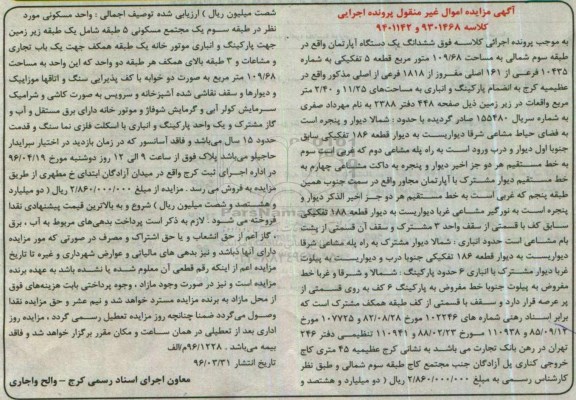 آگهی مزایده اموال غیر منقول پرونده اجرایی
کلاسه ۹۳۰۱۴۶۸ و ۹۴۰۱۱۴۲
به موجب پرونده اجرائی کلاسه فوق ششدانگ یک دستگاه آپارتمان واقع در
طبقه سوم شمالی به مساحت ۱۰۹/۶۸ متر مربع قطعه ۵ تفکیکی به شماره
۱۰۴۲۵ فرعی از ۱۶۱ اصلی مفروز از ۱۸۱۸ فرعی از اصلی مذکور واقع در
عظیمیه کرج به انضمام پارکینگ و انباری به مساحت‌های ۱۱/۲۵ و ۲/۴۰ متر
مربع واقعات در زیر زمین ذیل صفحه ۴۴۸ دفتر ۲۳۸۸ به نام مهرداد صفری
به شماره سریال ۱۵۵۴۸۰ صادر گردیده با حدود : شمالا دیوار و پنجره است
به فضای حیاط مشاعی شرقا دیواریست به دیوار قطعه ۱۸۶ تفکیکی سابق
جنوبا اول دیوار و درب ورود است به راه پله مشاعی دوم که غربی است سوم
به خط مستقیم هر دو جز اخیر دیوار و پنجره به داکت مشاعی چهارم به
خط مستقیم دیوار مشترک با آپارتمان مجاور واقع در سمت جنوب همین
طبقه پنجم که غربی است به خط مستقیم هر دو جز اخیر الذکر دیوار و
پنجره است به نورگیر مشاعی غربا دیواریست به دیوار قطعه ۱۸۸ تفکیکی
سابق کف با قسمتی از سقف واحد ۳ مشترک و سقف آن قسمتی از پشت
بام مشاعی است حدود انباری : شمالا دیوار مشترک به راه پله مشاعی شرقا
دیواریست به دیوار قطعه ۱۸۶ تفکیکی جنوبا درب و دیواریست به پیلوت
غربا دیوار مشترک با انباری ۶ حدود پارکینگ : شمالا و شرقا و غربا خط
مفروض به پیلوت جنوبا خط مفروض به پارکینگ ۶ کف به روی قسمتی از
پر عرصه قرار دارد و سقف با قسمتی از کف طبقه همکف مشترک است که
برابر اسناد رهنی شماره های ۱۰۲۲۴۶ مورخ ۸۲/۰۸/۲۸ و ۱۰۷۷۲۵ مورخ
۸۵/۰۹/۱۲ و ۱۱۰۹۳۸ مورخ ۸۸/۰۲/۲۳ و ۱۱۰۹۴۱ تنظیمی دفتر ۲۴۶
تهران در رهن بانک تجارت می باشد به نشانی کرج عظیمیه ۴۵ متری کاج
خروجی کناری پل آزادگان جنب مجتمع کاج طبقه سوم شمالی و طبق نظر
کارشناس رسمی به مبلغ ۲/۸۶۰/۰۰۰/۰۰۰ ریال ( دو میلیارد و هشتصد و
شصت میلیون ریال ) ارزیابی شده توصیف اجمالی : واحد مسکونی مورد
نظر در طبقه سوم یک مجتمع مسکونی ۵ طبقه شامل یک طبقه زیر زمین
جهت پارکینگ و انباری موتور خانه یک طبقه همکف جهت یک باب تجاری
و مشاعات و ۳ طبقه بالای همکف هر طبقه دو واحد که این واحد به مساحت
۱۰۹/۶۸ متر مربع به صورت دو خوابه با کف پذیرایی سنگ و اتاقها موزاییک
و دیوارها و سقف نقاشی شده آشپزخانه و سرویس به صورت کاشی و شرامیک
سرمایش کولر آبی و گرمایش شوفاژ و موتور خانه دارای برق مستقل و آب و
گاز مشترک و یک واحد پارکینگ و انباری با اسکلت فلزی نما سنگ و قدمت
حدود ۱۵ سال می‌باشد و فاقد آسانسور که در زمان بازدید در اختیار سرایدار
حاجیلو می‌باشد پلاک فوق از ساعت ۹ الی ۱۲ روز دوشنبه مورخ ۹۶/۰۴/۱۹
در اداره اجرای ثبت کرج واقع در میدان آزادگان ابتدای خ مطهری از طریق
مزایده به فروش می رسد . مزایده از مبلغ ۲/۸۶۰/۰۰۰/۰۰۰ ریال ( دو میلیارد
و هشتصد و شصت میلیون ریال ) شروع و به بالاترین قیمت پیشنهادی نقدا
فروخته می شود : لازم به ذکر است پرداخت بدهی‌های مربوطه به آب ، برق
، گاز اعم از حق انشعاب و یا حق اشتراک و مصرف در صورتی که مورد مزایده
دارای آنها باشد و نیز بدهی های مالیاتی و عوارض شهرداری و غیره تا تاریخ
مزایده اعم از اینکه رقم قطعی آن معلوم شده یا نشده باشد به عهده برنده
مزایده است و نیز در صورت وجود مازاد ، وجوه پرداختی بابت هزینه‌های فوق
از محل مازاد به برنده مزایده مسترد خواهد شد و نیم عشر و حق مزایده نقدا
وصول می‌گردد ضمنا چنانچه روز مزایده تعطیل رسمی گردد ، مزایده روز
اداری بعد از تعطیلی در همان ساعت و مکان مقرر برگزار خواهد شد و فاقد
بیمه می‌باشد . ۹۶/۱۲۲۸م/الف
تاریخ انتشار ۹۶/۰۳/۳۱
معاون اجرای اسناد رسمی کرج – والح واجاری